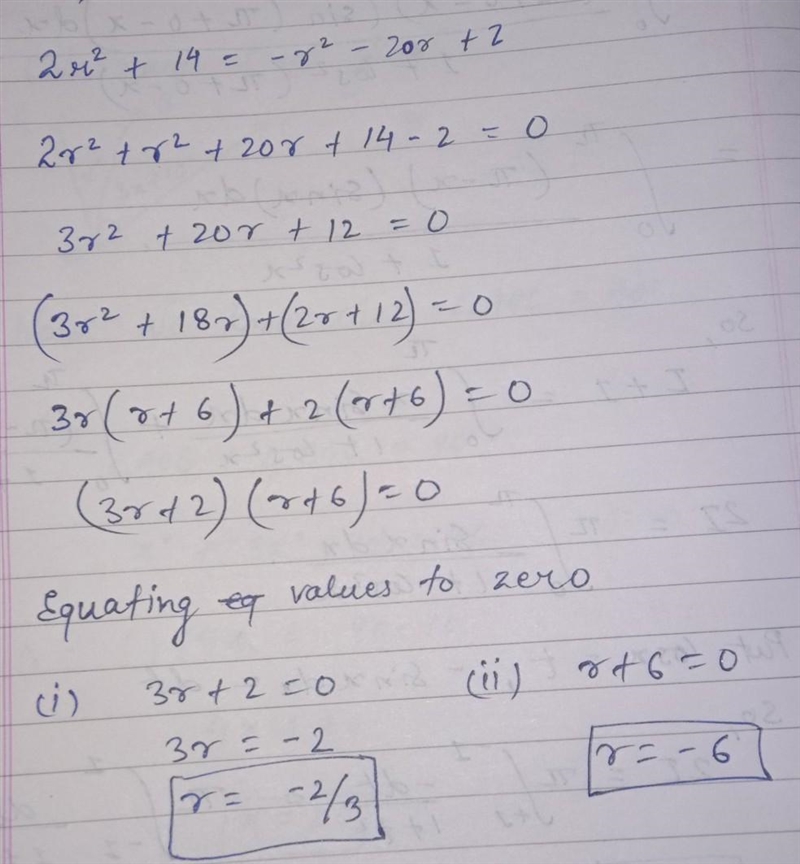 2r² + 14 = -r² - 20r + 2
2r² + r² + 20r + 14 - 2 = 0
3r² + 20r + 12 = 0
(3r² + 18r) + (2r + 12) = 0
3r(r + 6) + 2(r + 6) = 0
(3r + 2) (r + 6) = 0
Equating values to zero
(i) 3r + 2 = 0 (ii) r + 6 = 0
3r = -2
r = -2/3 r = -6